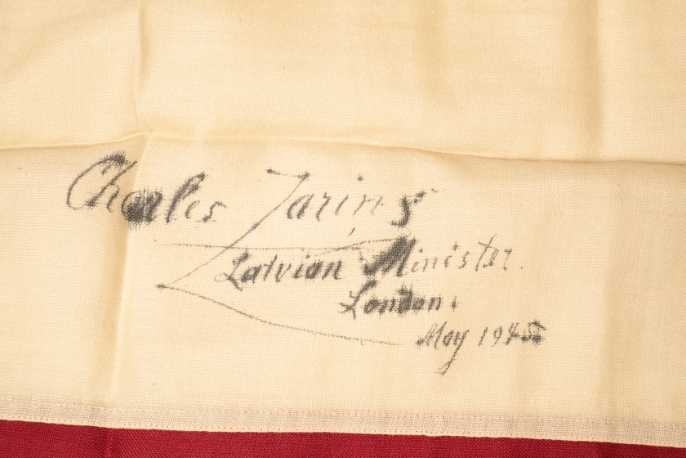 Charles Zariņš
Latvian Minister.
London.
May 1945